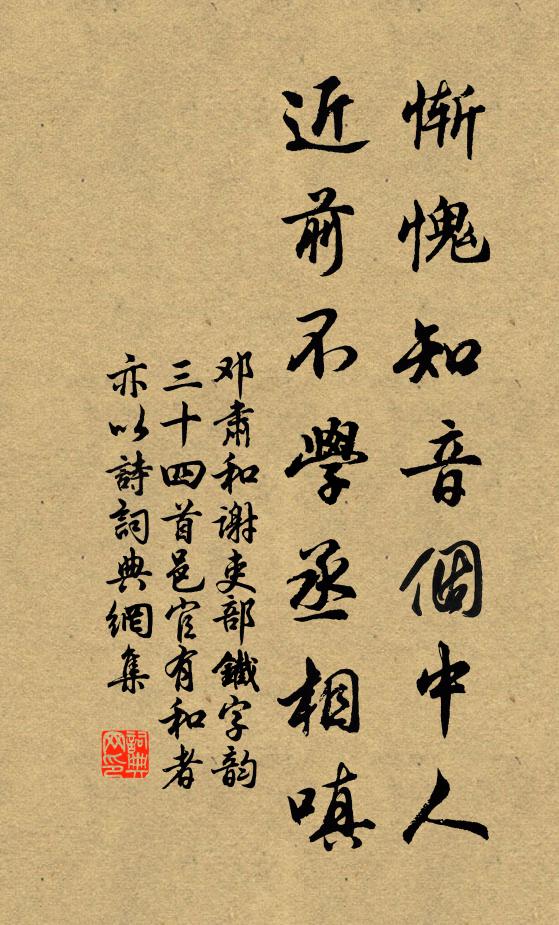 慚愧知音個中人
近前不學丞相嗔
邓肅和谢吏部鐵字韵
三十四首邑官有和者
亦以詩詞典網集
詞典网印